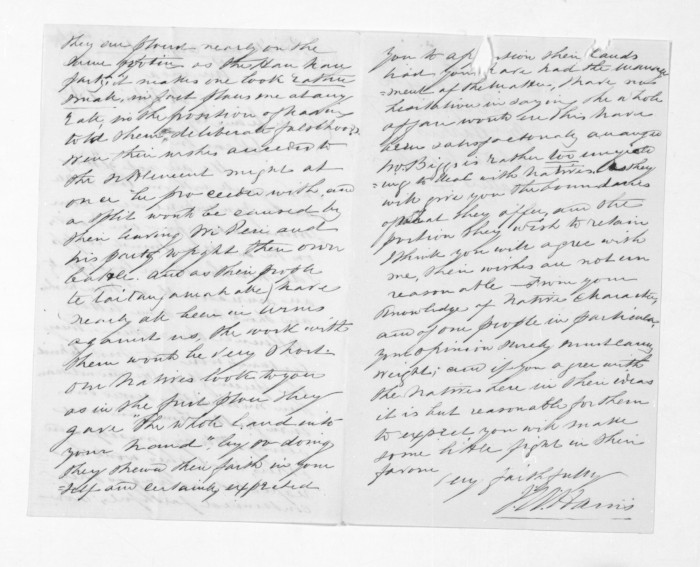 they are placed nearly on the
same footing as the Hau Hau
party, it makes one look rather
small, in fact places me at any
rate, in the position of having
told them deliberate falsehoods
Were their wishes acceded to
the settlement might at
once be proceeded with, and
a split would be caused by
their leaving Wi Pere and
his party to fight their own
battle. And as their people
te Aitanga a mahaki have
nearly all been in arms
against us, the work with
them would be very short
our Natives look to you
as in the first place they
gave "the whole land into
your hand", by so doing
they shewed their faith in your
=self and certainly expected
you to apportion their lands
had you have had the manage
=ment of the matter, I have no
hesitation in saying the whole
affair would ere this have
been satisfactorily arranged
Mr Biggs is rather too
=ing to deal with Natives. They
will give you the boundaries
of what they offer, and the
portion they wish to retain
I think you will agree with
me, their wishes are not un
reasonable — From your
knowledge of Native Character
and of our people in particular
your opinion surely must carry
weight; and if you agree with
the Natives here in their ideas
it is but reasonable for them
to expect you will make
some little fight in their
favor
very faithfully
Harris